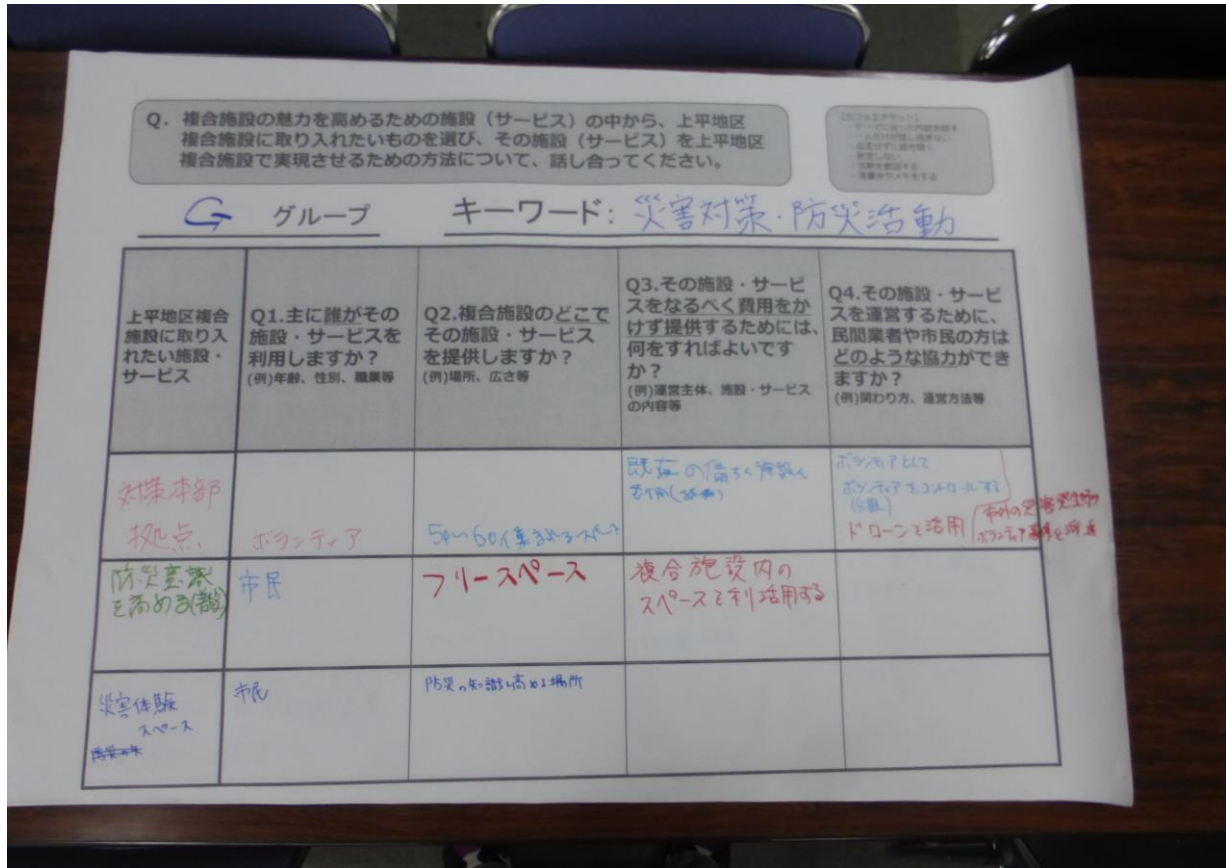 Q. 複合施設の魅力を高めるための施設（サービス）の中から、上平地区
複合施設に取り入れたいものを選び、その施設（サービス）を上平地区
複合施設で実現させるための方法について、話し合ってください。
G グループ
キーワード: 災害対策・防災活動
上平地区複合
施設に取り入
れたい施設・
サービス
Q1.主に誰がその
施設・サービスを
利用しますか？
(例)年齢、性別、職業等
Q2.複合施設のどこで
その施設・サービス
を提供しますか？
(例)場所、広さ等
Q3.その施設・サービ
スをなるべく費用をか
けず提供するためには、
何をすればよいです
か？
(例)運営主体、施設・サービス
の内容等
Q4.その施設・サービ
スを運営するために、
民間業者や市民の方は
どのような協力ができ
ますか？
(例)関わり方、運営方法等
対策本部
拠点
ボランティア
50〜60人集まれるスペース
既存の
ボランティアとして
ボランティアをコントロールする
ドローンを活用
市外の災害発生時の
ボランティア募集を
防災意識
を高める
市民
フリースペース
複合施設内の
スペースを利活用する
災害体験
スペース
市民
防災の知識を高める場所